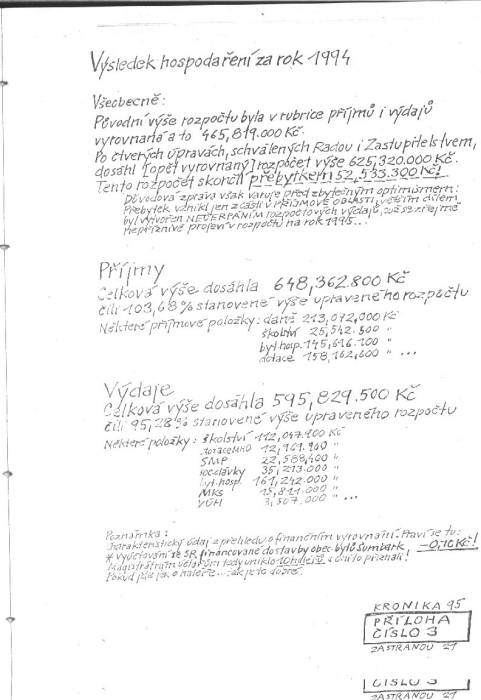 Výsledek hospodaření za rok 1994
Všeobecně:
Původní výše rozpočtu byla v rubrice příjmů i výdajů
vyrovnaná a to 465,819.000 Kč.
Po čtverých úpravách, schválených Radou i Zastupitelstvem,
dosáhl (opět vyrovnaný) rozpočet výše 625,320.000 Kč.
Tento rozpočet skončil přebytkem 52,533.300 Kč!
Důvodová zpráva však varuje před zbytečným optimismem:
Přebytek vznikl jen zčásti v PŘÍJMOVÉ OBLASTI, větším dílem
byl vytvořen NEČERPÁNÍM rozpočtových výdajů, což se zřejmě
nepříznivě projeví v rozpočtu na rok 1995...!
Příjmy
Celková výše dosáhla 648,362.800 Kč
čili 103,68% stanovené výše upraveného rozpočtu
Některé příjmové položky: daně 213,072,000 Kč
školství 25,542.500 "
byt.hosp. 145,616.100 "
dotace 158,162,600 " ...
Výdaje
Celková výše dosáhla 595,829.500 Kč
čili 95,28% stanovené výše upraveného rozpočtu
Některé položky: školství 112,047.900 Kč
12,961.900 "
SMP 22,588,400 "
soc.dávky 35,213.000 "
byt.hosp. 161,242.000 "
MKS 15,811.000 "
VÚH 3,507.000 " ...
Poznámka:
Charakteristický údaj z přehledu o finančním vyrovnání. Praví se tu:
* Vyúčtování ze SR financované dostavby obec.bytů Šumbark —0,10 Kč!
Magistrátním úřadům tady uniklo 10 haléřů a oni to přiznali!
Pokud jde jen o haléře... ale je to dobré.
KRONIKA 95
PŘÍLOHA
ČÍSLO 3
ZA STRANOU 21
ČÍSLO 3
ZA STRANOU 21